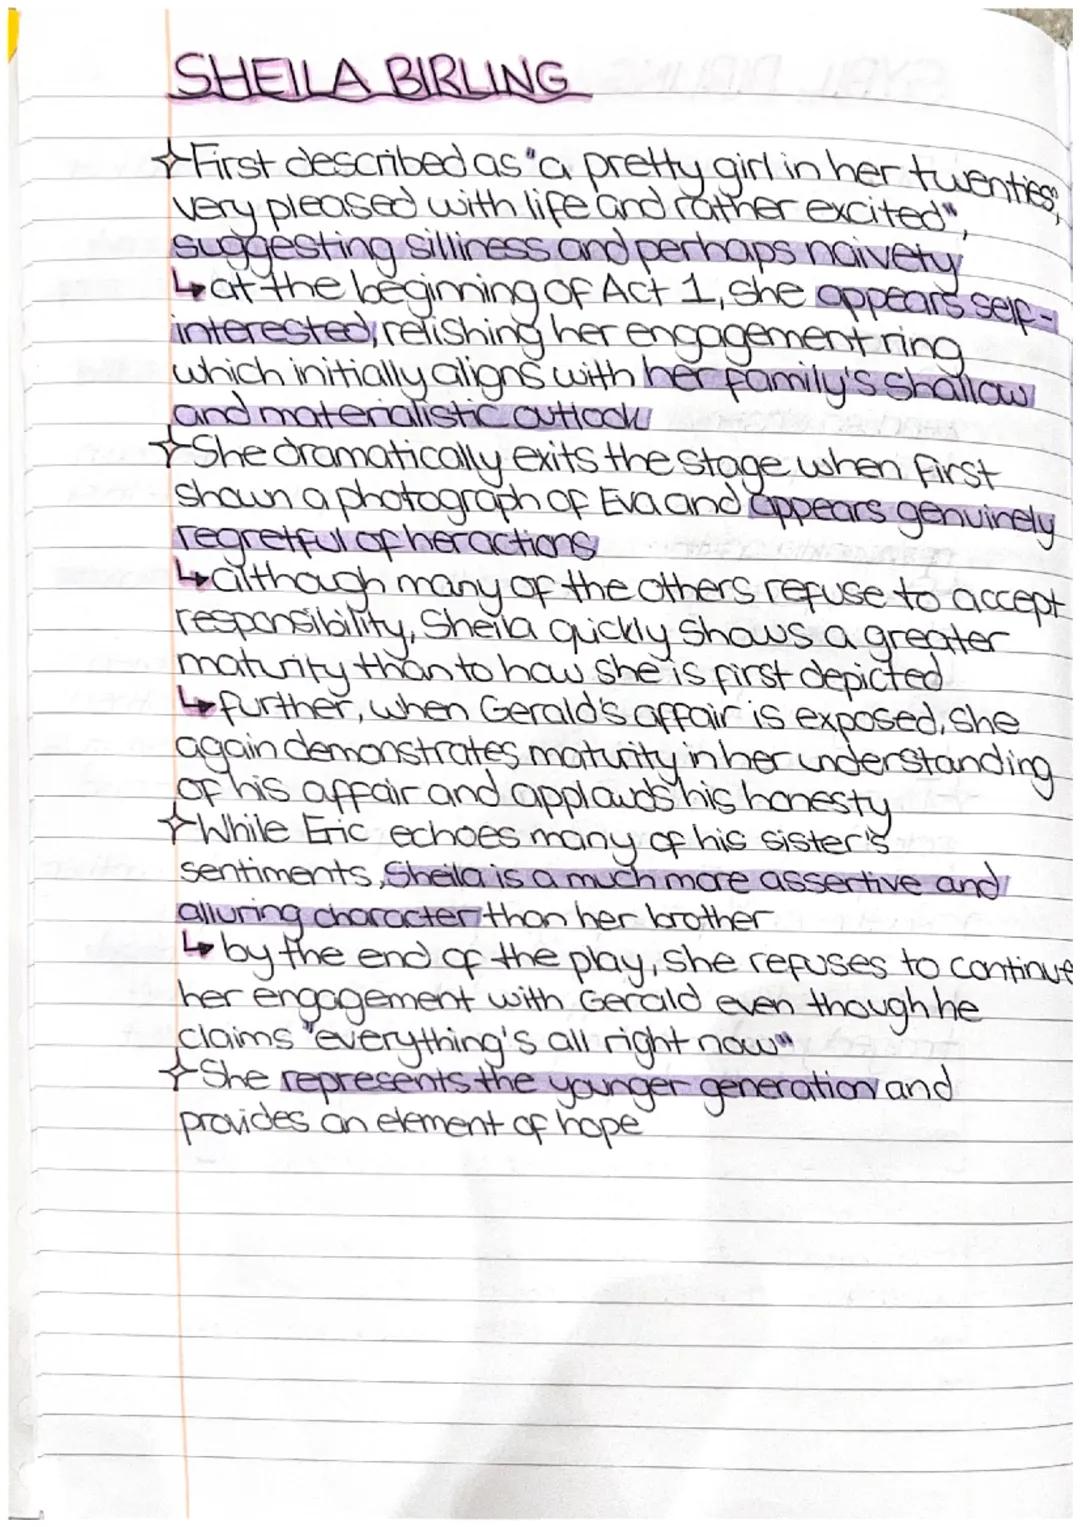 SHEILA BIRLING
✧First described as "a pretty girl in her twenties,
very pleased with life and rather excited",
suggesting silliness and perhaps naivety
↳at the beginning of Act 1, she appears self-
interested, relishing her engagement ring
which initially aligns with her family's shallow
and materialistic outlook
✧She dramatically exits the stage when first
shown a photograph of Eva and appears genuinely
regretful of her actions
↳although many of the others refuse to accept
responsibility, Sheila quickly shows a greater
maturity than to how she is first depicted
↳further, when Gerald's affair is exposed, she
again demonstrates maturity in her understanding
of his affair and applauds his honesty
✧While Eric echoes many of his sister's
sentiments, Sheila is a much more assertive and
alluring character than her brother
↳by the end of the play, she refuses to continue
her engagement with Gerald even though he
claims "everything's all right now"
✧She represents the younger generation and
provides an element of hope